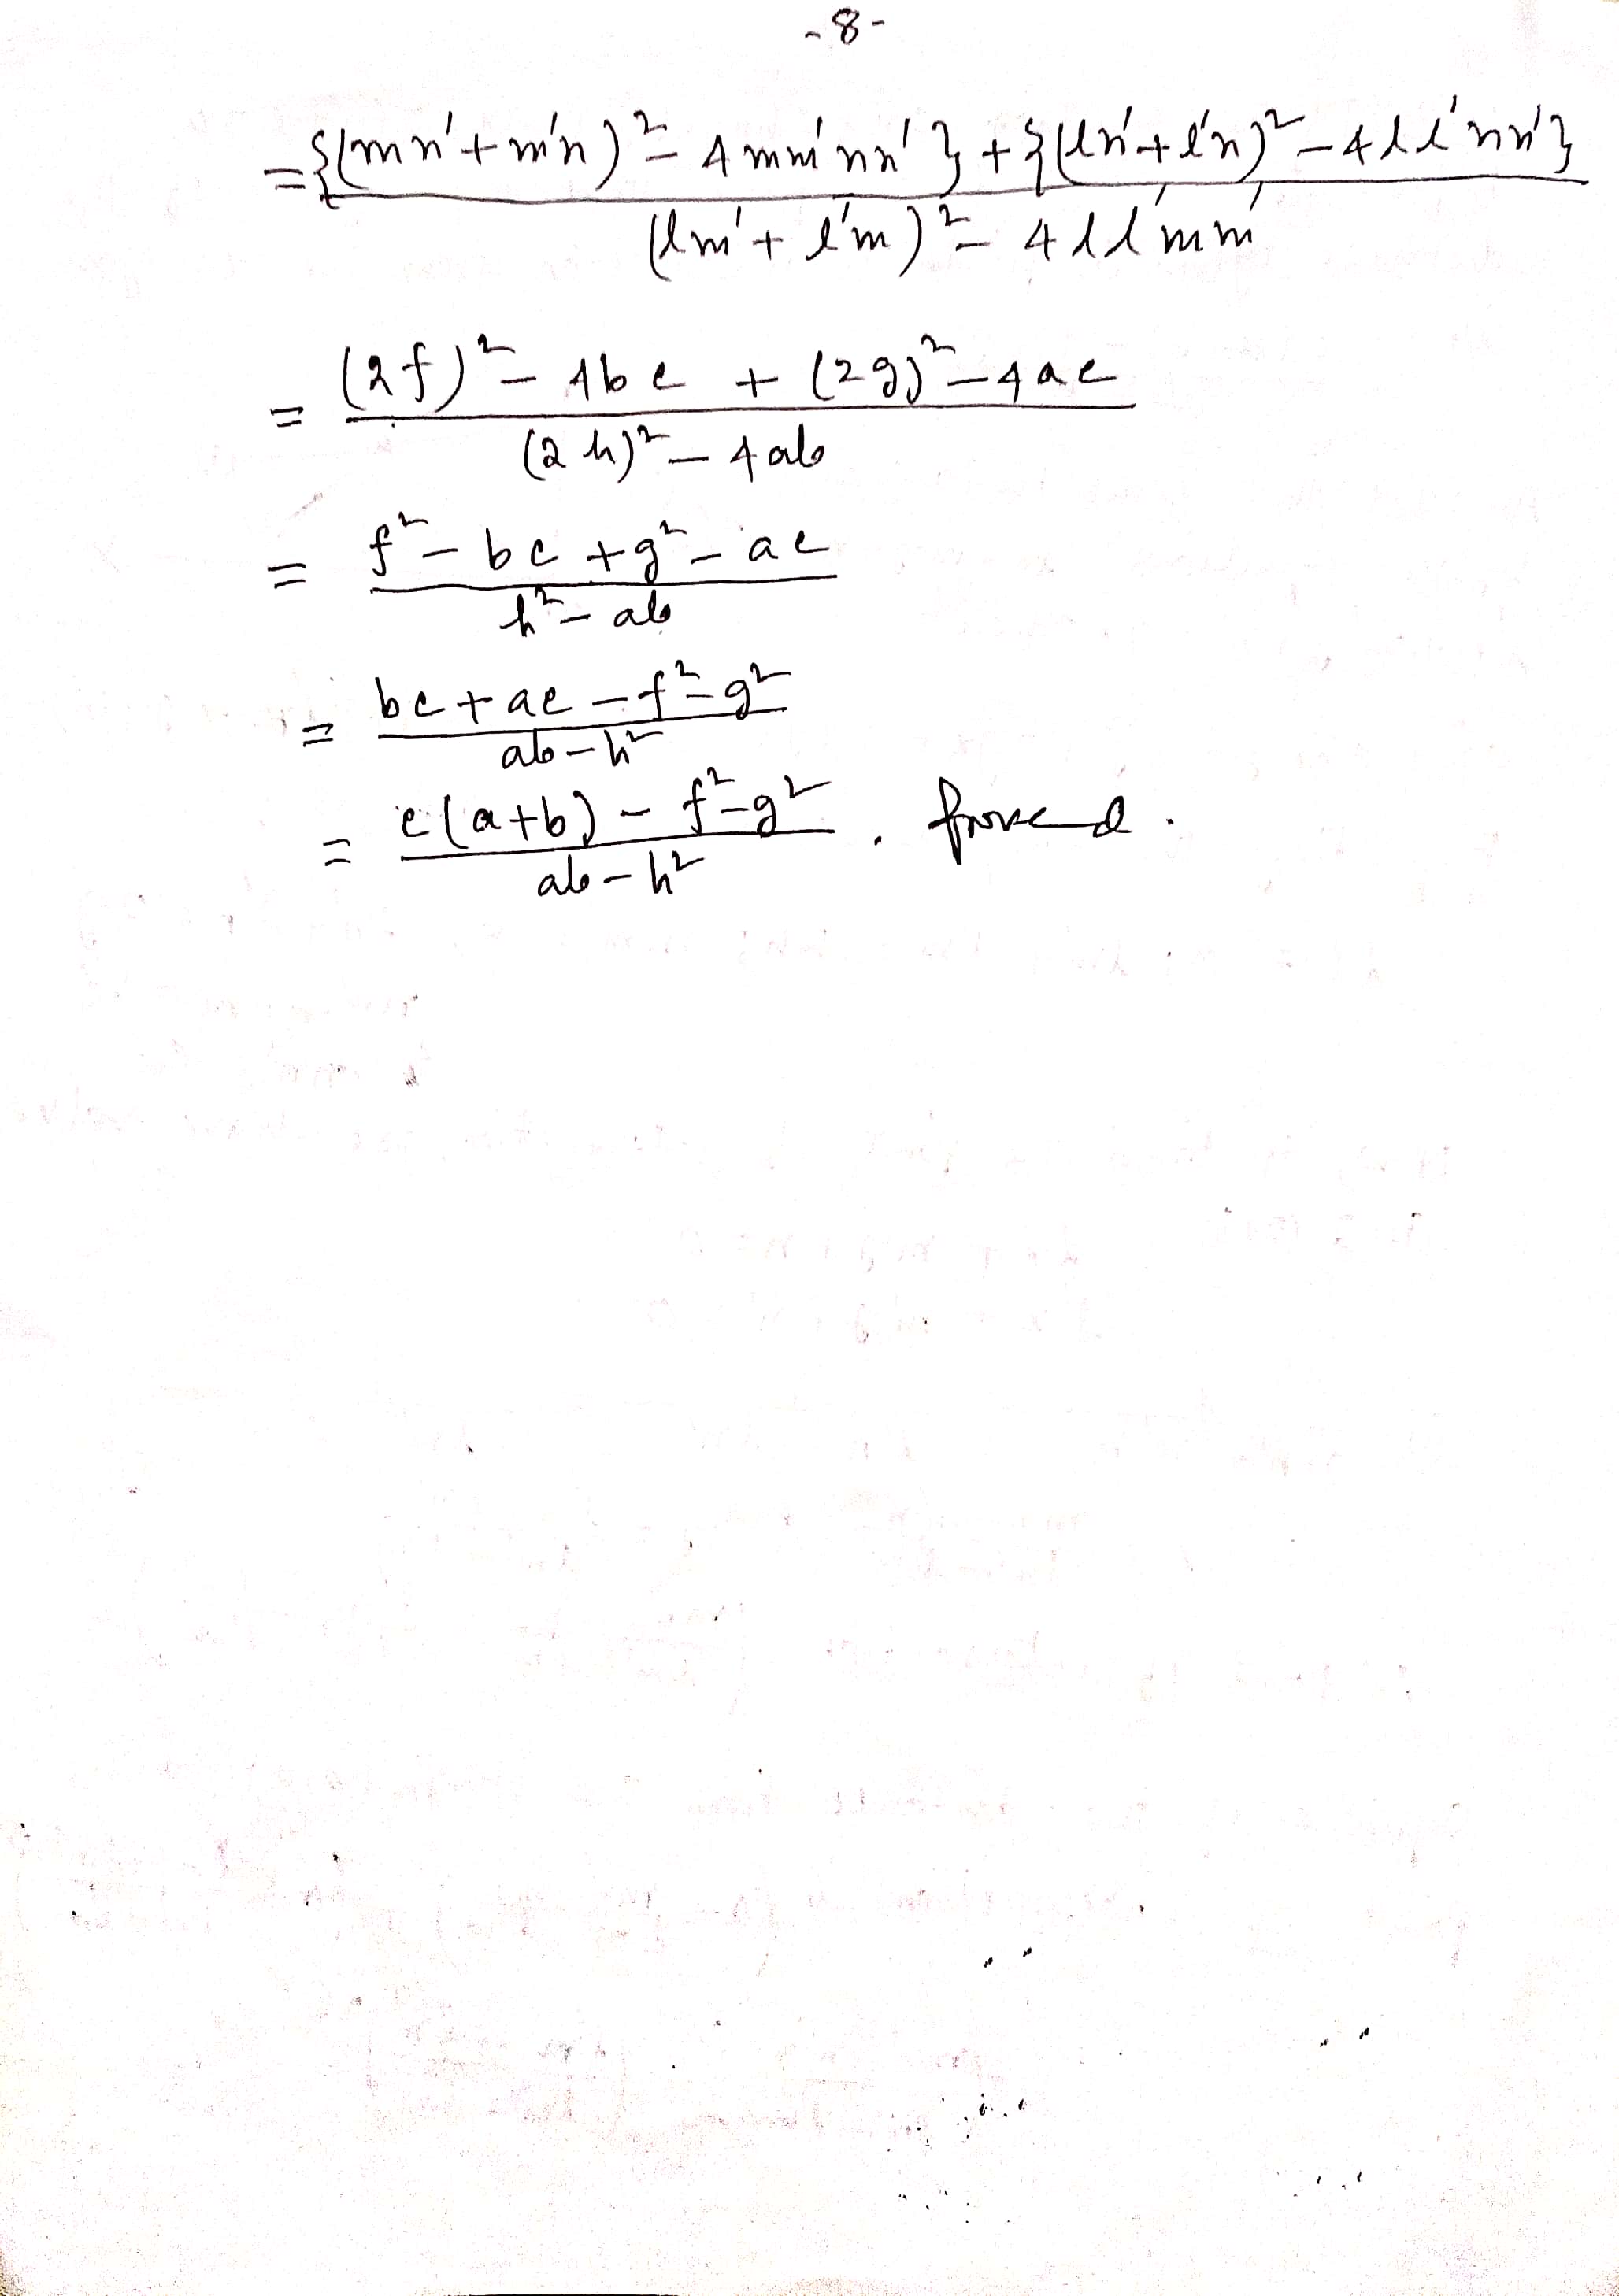 -8-
= {(mn'+m'n)² - 4mm'nn'} + {(ln'+l'n)² - 4ll'nn'}
(lm'+l'm)² - 4ll'mm'
= (2f)² - 4bc + (2g)² - 4ac
(2h)² - 4ab
= f² - bc + g² - ac
h² - ab
= bc + ac - f² - g²
ab - h²
= c(a+b) - f² - g² . Proved.
ab - h²